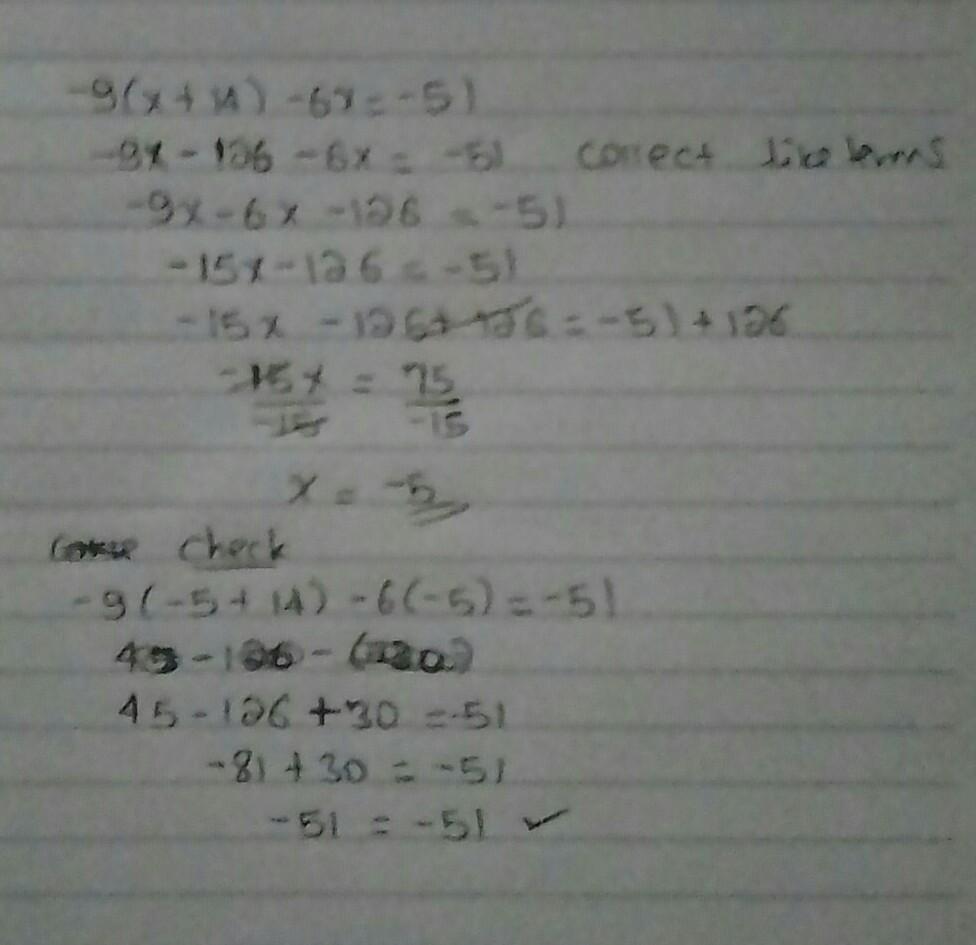 -9(x + 14) - 6x = -51
-9x - 126 - 6x = -51 correct like terms
-9x - 6x - 126 = -51
-15x - 126 = -51
-15x - 126 + 126 = -51 + 126
-15x = 75
-15 -15
x = -5
check
-9(-5 + 14) - 6(-5) = -51
45 - 126 -
45 - 126 + 30 = -51
-81 + 30 = -51
-51 = -51 ✓